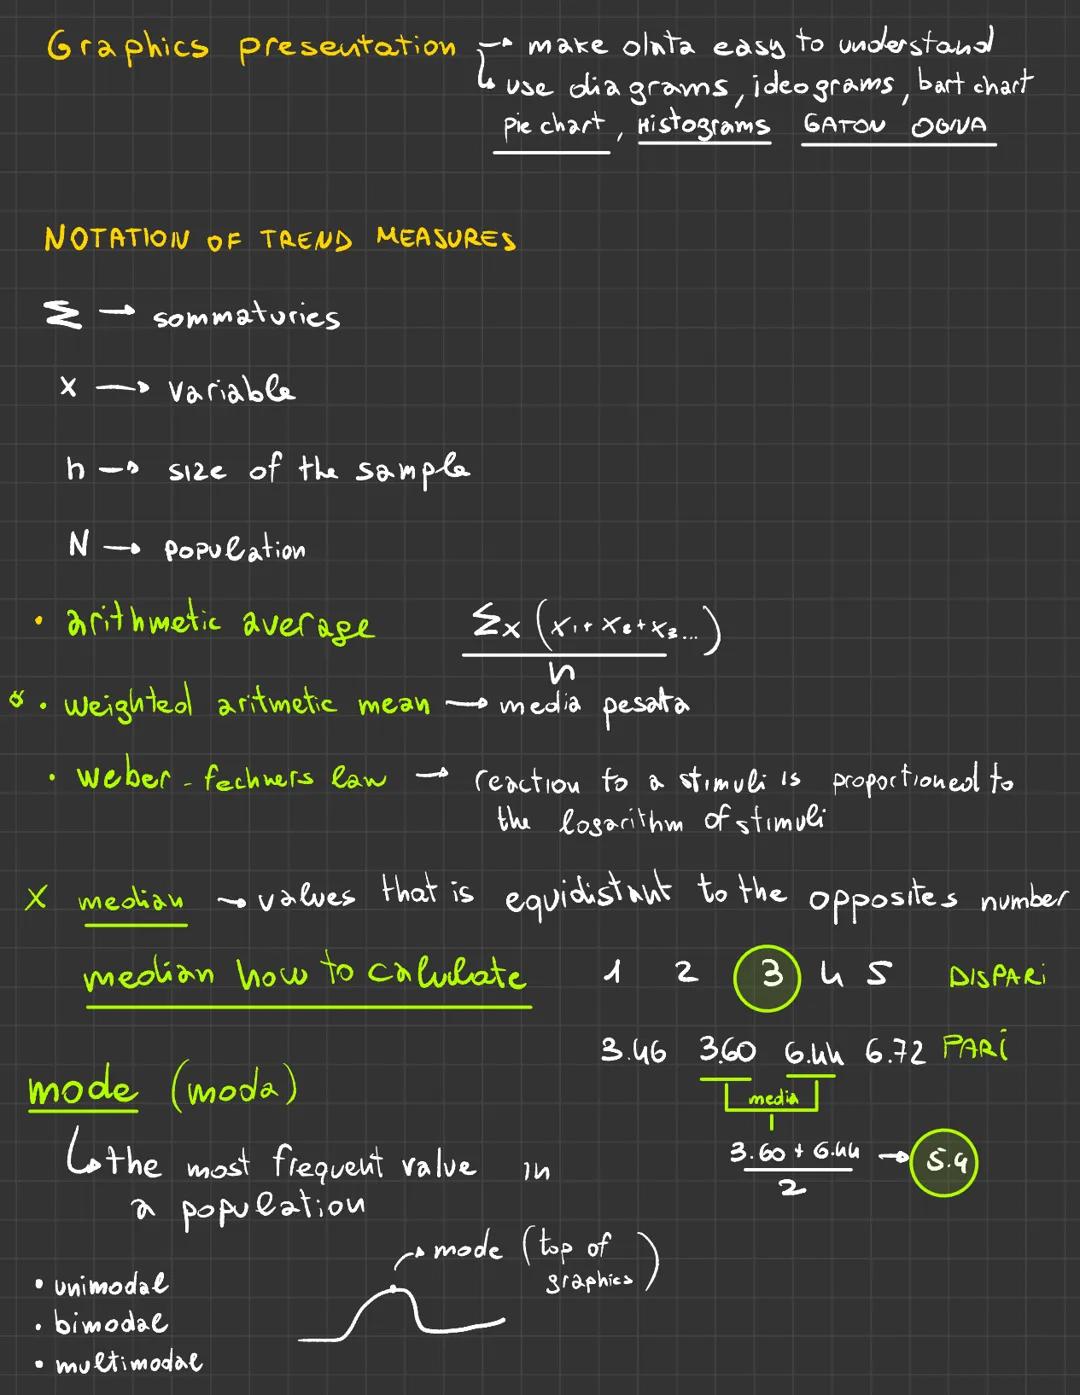 Graphics presentation → make data easy to understand
↳ use diagrams, ideograms, bart chart
pie chart, Histograms GATON OGIVA
NOTATION OF TREND MEASURES
Σ → sommatories
x → variable
n → size of the sample
N → population
• arithmetic average Σx (x₁+x₂+x₃...)
n
• weighted aritmetic mean → media pesata
• weber-fechners law → reaction to a stimuli is proportioned to
the logarithm of stimuli
X median → values that is equidistant to the opposites number
median how to calulate 1 2 3 4 5 DISPARI
3.46 3.60 6.44 6.72 PARI
mode (moda)
media
↳ the most frequent value in
a population
3.60 + 6.44 → 5.4
2
→ mode (top of
graphics)
• unimodal
• bimodal
• multimodal